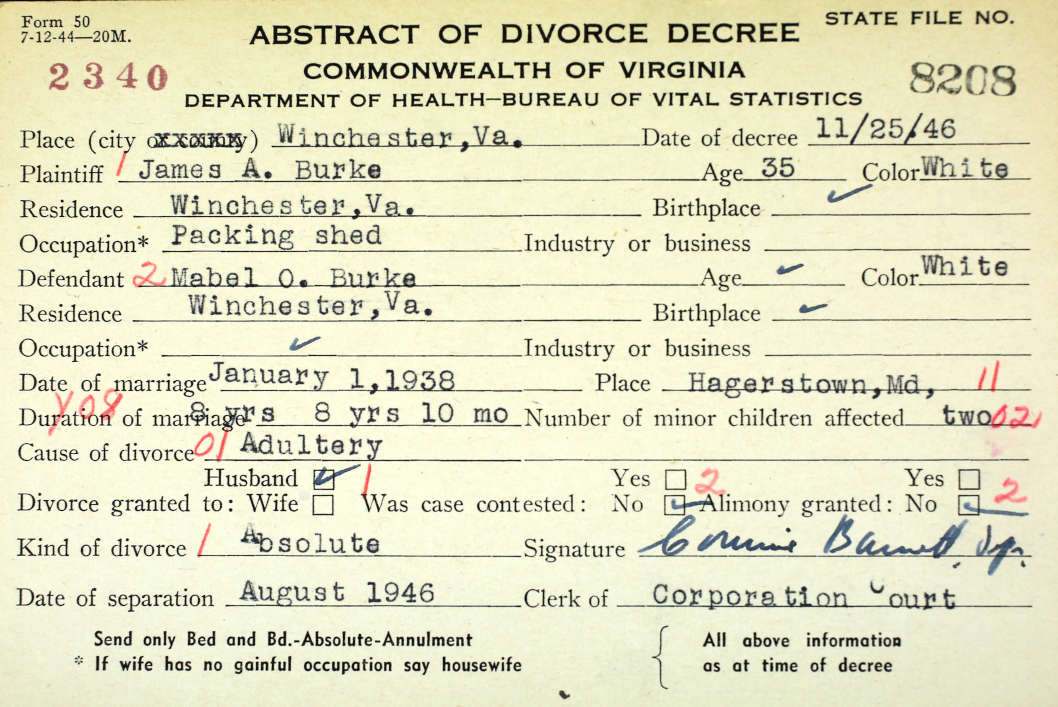 Form 50
7-12-44—20M.
STATE FILE NO.
ABSTRACT OF DIVORCE DECREE
2340
COMMONWEALTH OF VIRGINIA
8208
DEPARTMENT OF HEALTH—BUREAU OF VITAL STATISTICS
Place (city or county) Winchester,Va. Date of decree 11/25/46
Plaintiff 1 James A. Burke Age 35 Color White
Residence Winchester,Va. Birthplace ✓
Occupation* Packing shed Industry or business
Defendant 2 Mabel O. Burke Age ✓ Color White
Residence Winchester,Va. Birthplace ✓
Occupation* ✓ Industry or business
Date of marriage January 1,1938 Place Hagerstown,Md, 11
Duration of marriage 8 yrs 8 yrs 10 mo Number of minor children affected two 02
Y08
Cause of divorce 01 Adultery
Husband ☑ 1 Yes ☐ 2 Yes ☐ 2
Divorce granted to: Wife ☐ Was case contested: No ☑ Alimony granted: No ☑
Kind of divorce 1 Absolute Signature Connie Barnett, Dep.
Date of separation August 1946 Clerk of Corporation Court
Send only Bed and Bd.-Absolute-Annulment
* If wife has no gainful occupation say housewife
All above information
as at time of decree